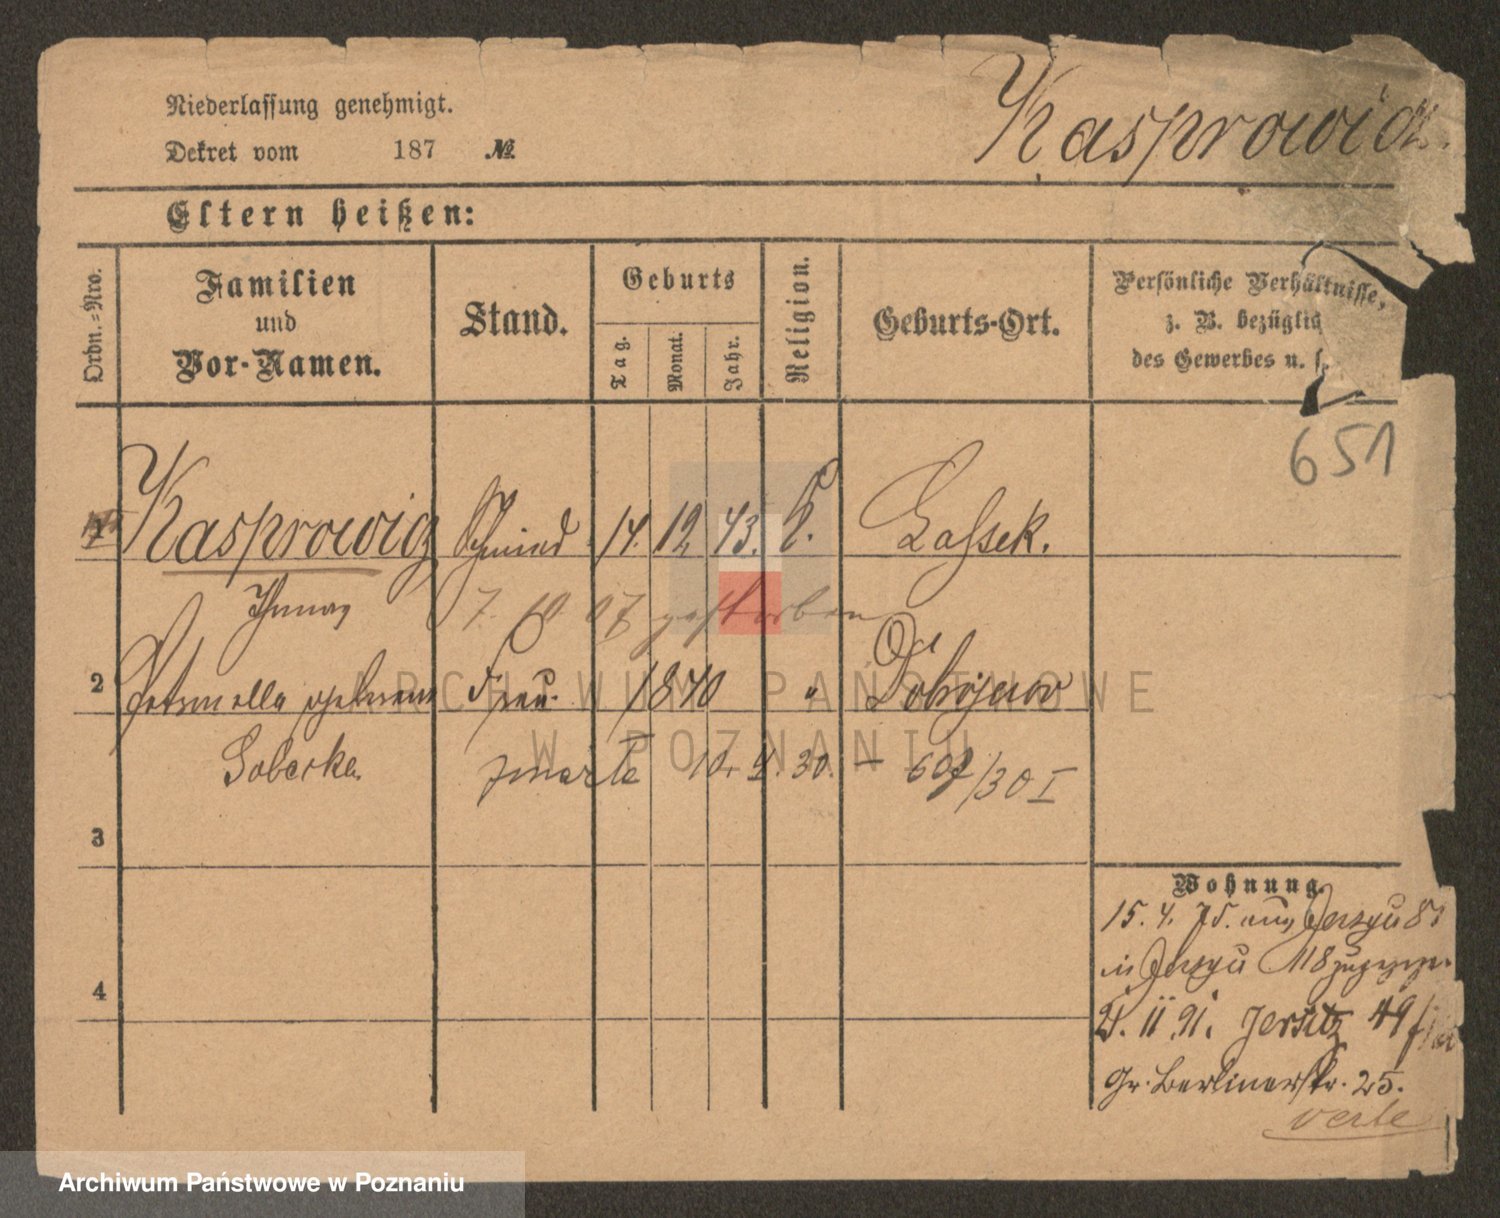 Niederlassung genehmigt.
Dekret vom 187 №
Kasprowicz.
Eltern heißen:
Ordn.=Nro.
Familien
und
Vor-Namen.
Stand.
Geburts
Tag.
Monat.
Jahr.
Religion.
Geburts-Ort.
Persönliche Verhältnisse,
z. B. bezüglich
des Gewerbes u. s.
651
1 Kasprowicz Schmied 14. 12 43. k. Lassek.
7. 10 07 gestorben
2 Petronella geborene Frau. 1840 " Dobrojewo
Soberka zmarła 10. 4. 30. – 607/30 I
3
4
Wohnung.
15. 4. 75. aus Jerzyce 81
in Jerzyce 118
11 91. Jersitz 49
Gr. Berlinerstr. 25.
verte
ARCHIWUM PAŃSTWOWE
W POZNANIU
Archiwum Państwowe w Poznaniu